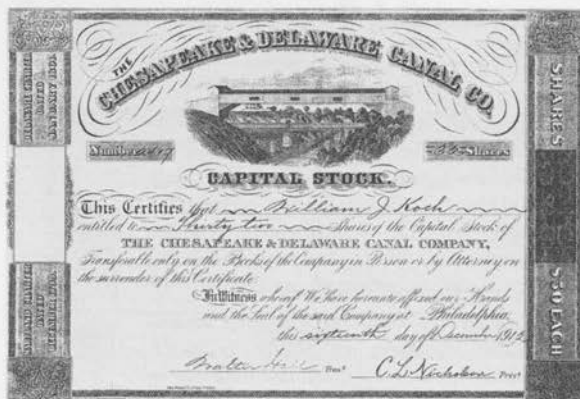 THE
CHESAPEAKE & DELAWARE CANAL CO.
Number
=32= Shares
CAPITAL STOCK.
This Certifies that William J Koch
entitled to Thirty two Shares of the Capital Stock of
THE CHESAPEAKE & DELAWARE CANAL COMPANY,
Transferable only on the Books of the Company in Person or by Attorney on
the surrender of this Certificate.
In Witness whereof We have hereunto affixed our Hands
and the Seal of the said Company at Philadelphia,
this sixteenth day of December
Treasr
C. L. Nicholson Prest
DELAWARE CHARTER
DATED
MARYLAND CHARTER
DATED
DECEMBER
SHARES
$50 EACH